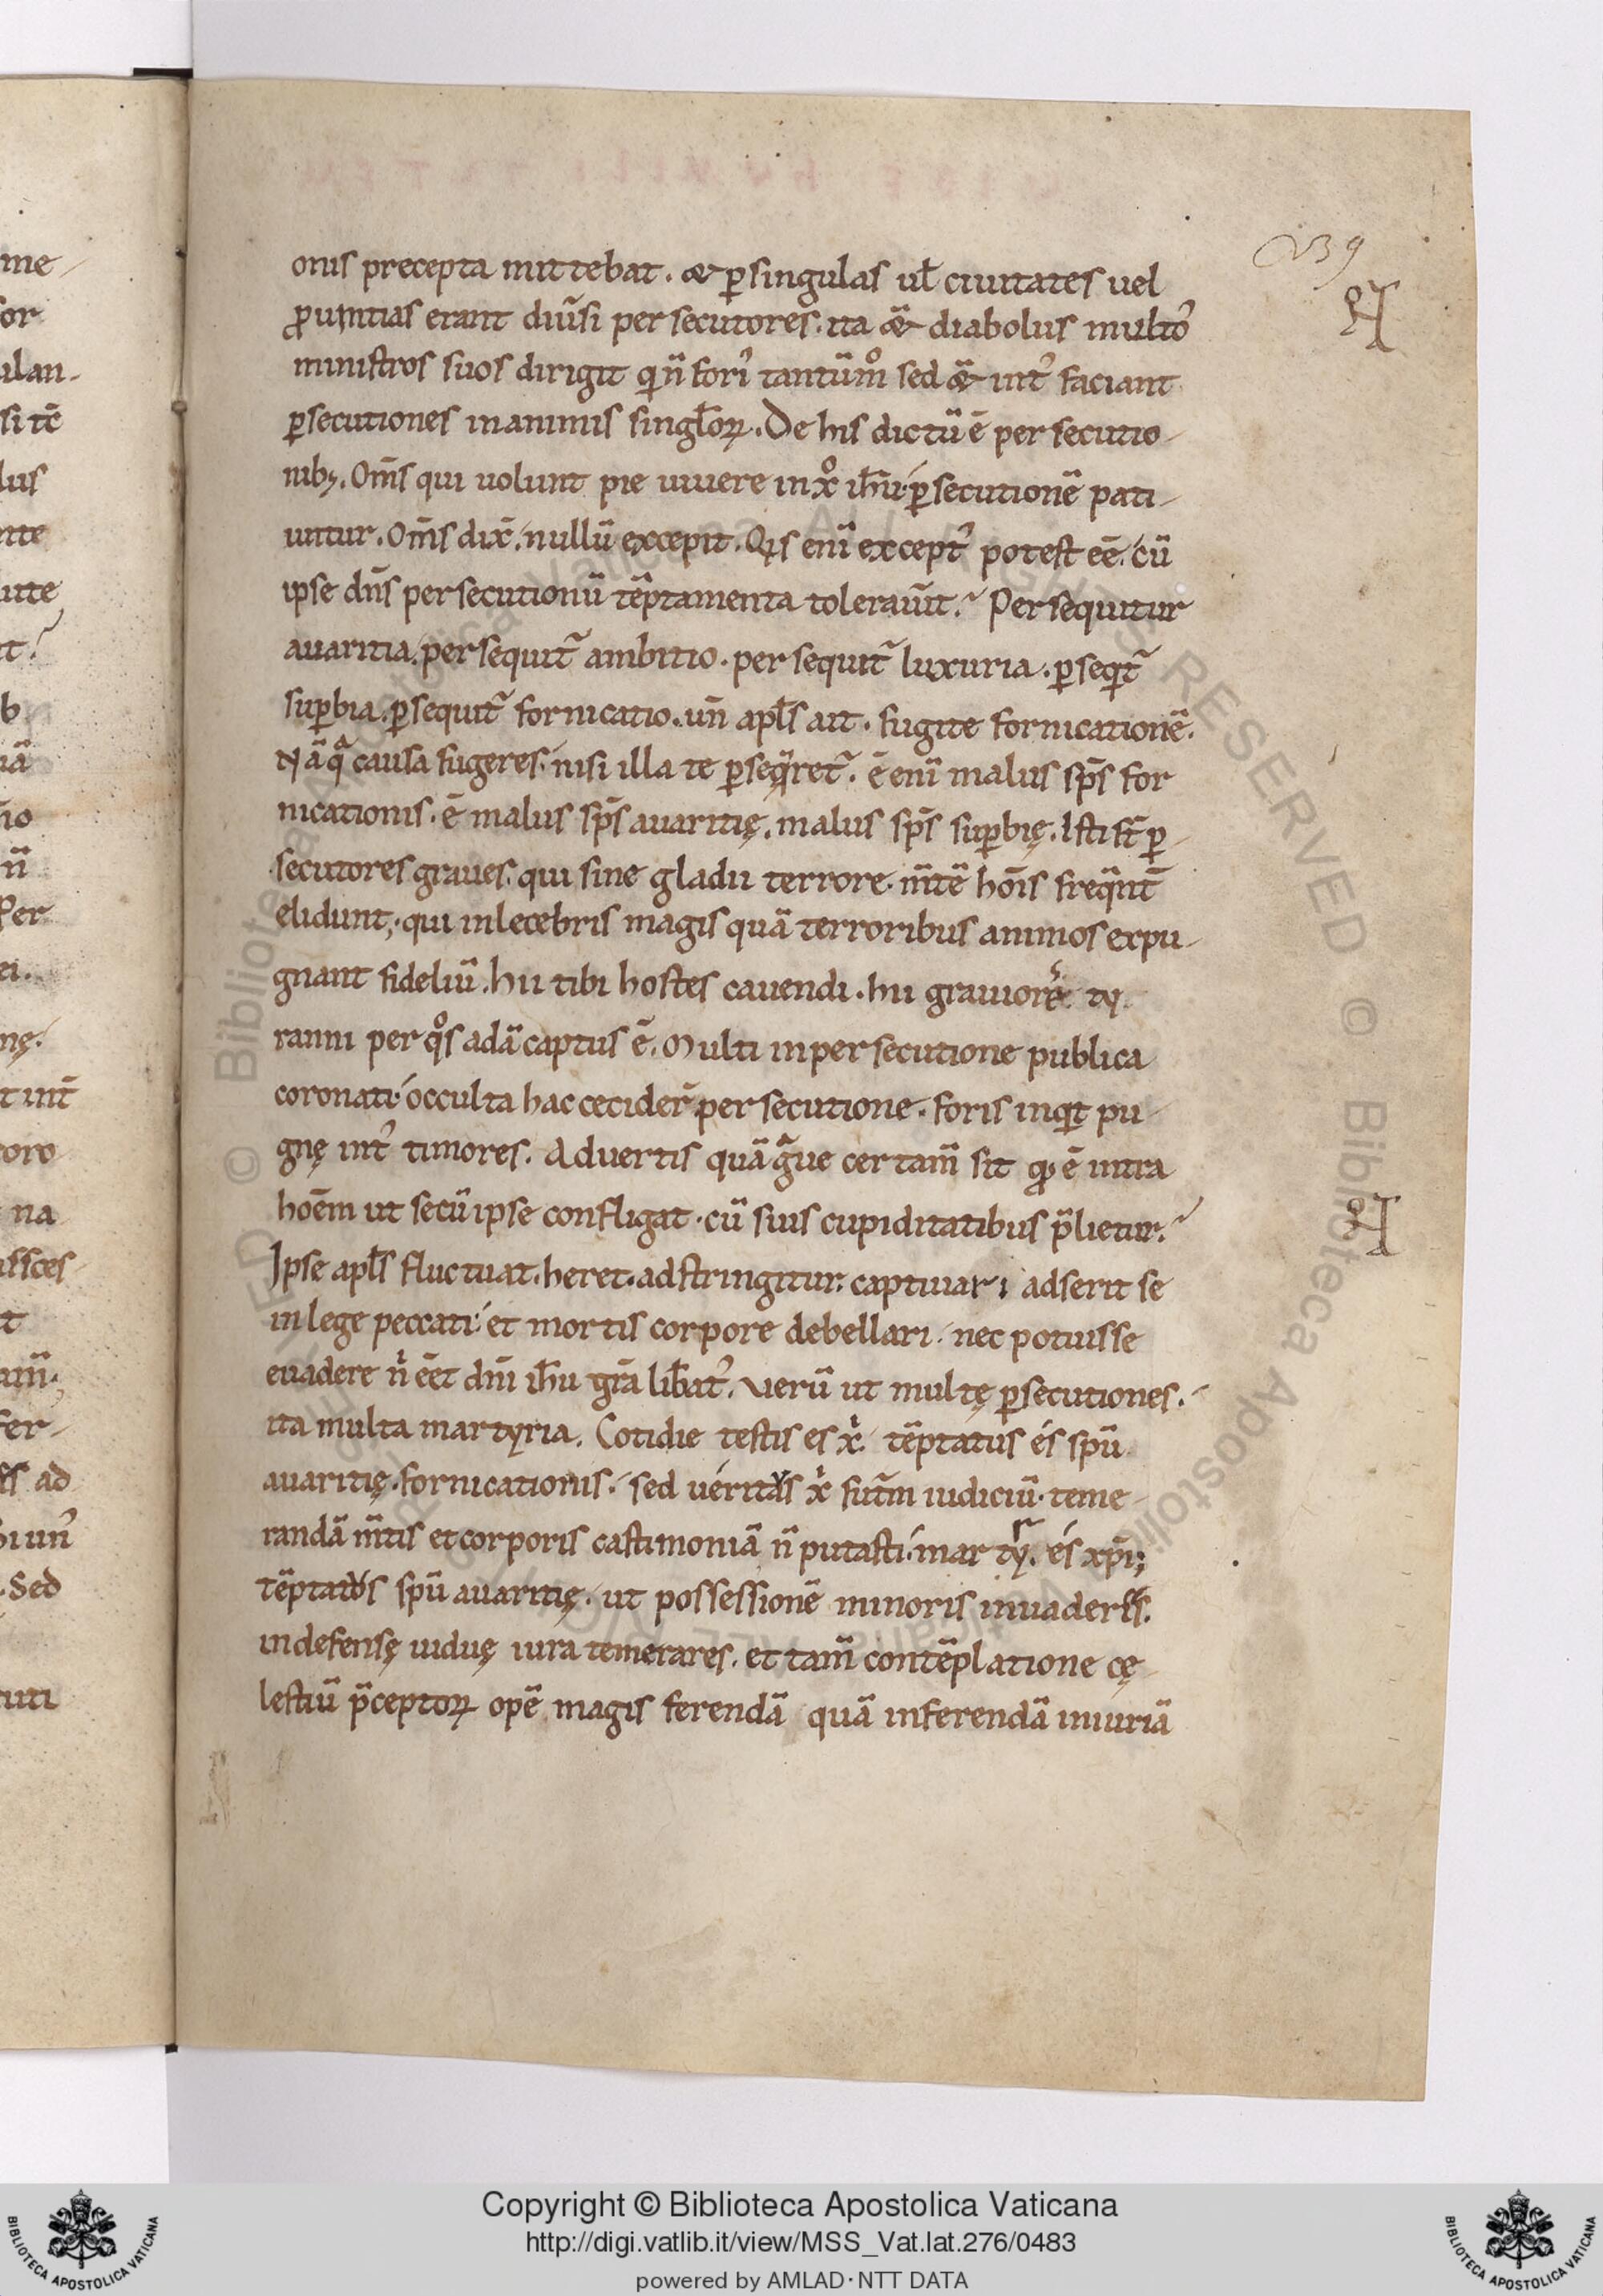 me
onis precepta mittebat. & ꝑsingulas ul̄ ciuitates uel
ꝓuintias erant diūsi persecutores. ita &̄ diabolus multoʼ
ministros suos dirigit qi n̄ foriʼ tantūm̊ sed &̄ intʼ faciant
ꝑsecutiones inanimis singl̄oꝝ. De his dictū ē persecutio-
nibꝫ. Om̄s qui uolunt pie uiuere inxͦ ih̄u ꝑsecutionē pati-
untur. Om̄s dix̄. nullū excepit. Qis eni̅ exceptʼ potest eē. cū
ipse dn̄s persecutionū tēptamenta tolerauīt. Persequitur
auaritia. persequit̄ ambitio. persequit̄ luxuria. ꝑseqit̄
suꝑbia. ꝑsequit̄ fornicatio. un̄ apl̄s ait. fugite fornicationē.
Nā qa causa fugeres. nisi illa te ꝑseqeret̄. ē eni̅ malus sp̄s for
nicationis. ē malus sp̄s auaritię. malus sp̄s suꝑbię. Isti st̄ ꝑ-
secutores graues. qui sine gladii terrore. m̄tē hoīs freqn̄t̄
elidunt. qui inlecebris magis quā terroribus animos expu-
gnant fideliū. hii tibi hostes cauendi. hii grauiorēs ty
ranni per qos adā captus ē. Multi inpersecutione publica
coronati occulta hac cecider̄ persecutione. foris inqit pu-
gnę intʼ timores. Aduertis quā gaue certam̄ sit qd ē intra
hoēm ut secū ipse confligat. cū suis cupiditatibus p̄lietur.
Ipse apl̄s fluctuat. heret. adstringitur. captiuari adserit se
inlege peccati et mortis corpore debellari. nec potuisse
euadere ni eēt dn̄i ih̄u gr̄a lib̄atʼ. Verū ut multę ꝑsecutiones.
ita multa martyria. Cotidie testis es xi. tēptatus es spū
auaritię. fornicationis. sed ueritus xi fut̄m iudiciū. teme-
randā m̄tis et corporis castimoniā n̄ putasti. martyr es xp̄i;
tēptatus spū auaritię. ut possessionē minoris inuaderes.
indefensę uiduę iura temerares. et tam̄ contēplatione cę-
lestiū p̄ceptoꝝ opē magis ferendā quā inferendā iniuriā
239
Copyright © Biblioteca Apostolica Vaticana
http://digi.vatlib.it/view/MSS_Vat.lat.276/0483
powered by AMLAD·NTT DATA